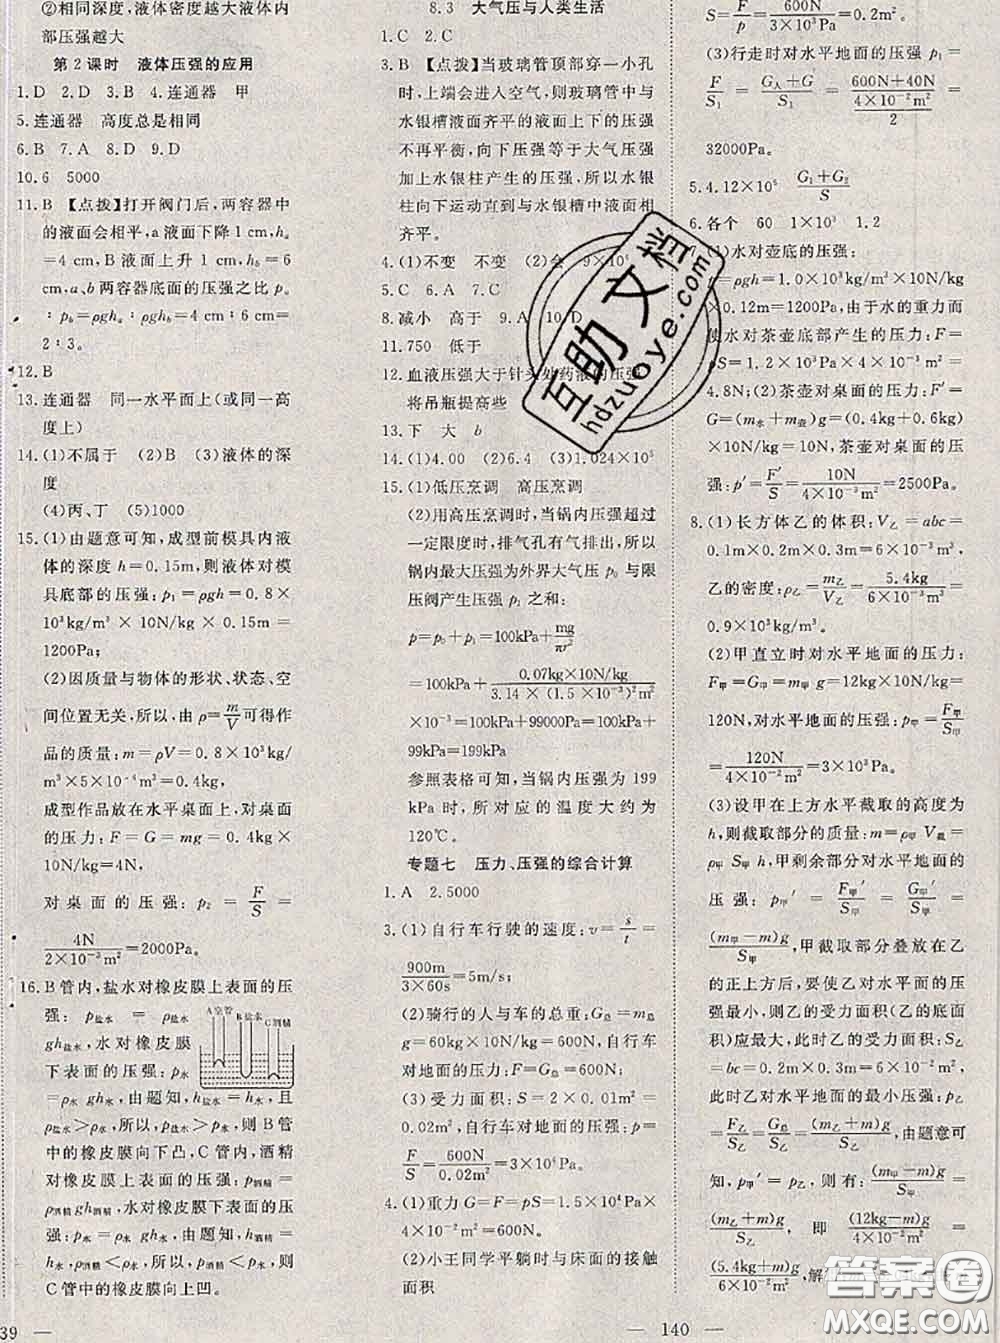 ②相同深度,液体密度越大液体内
部压强越大
第2课时 液体压强的应用
1.D 2.D 3.B 4.连通器 甲
5.连通器 高度总是相同
6.B 7.A 8.D 9.D
10.6 5000
11.B 【点拨】打开阀门后,两容器中
的液面会相平,a液面下降1 cm,hₐ
=4 cm,B液面上升1 cm,h_b=6
cm,a、b两容器底面的压强之比pₐ
∶p_b=ρghₐ∶ρgh_b=4cm∶6cm=
2∶3。
12.B
13.连通器 同一水平面上(或同一高
度上)
14.(1)不属于 (2)B (3)液体的深
度
(4)丙、丁 (5)1000
15.(1)由题意可知,成型前模具内液
体的深度h=0.15m,则液体对模
具底部的压强:p=ρgh=0.8×
10³kg/m³×10N/kg×0.15m=
1200Pa;
(2)因质量与物体的形状、状态、空
间位置无关,所以,由ρ=m/V可得作
品的质量:m=ρV=0.8×10³kg/
m³×5×10⁻⁴m³=0.4kg,
成型作品放在水平桌面上,对桌面
的压力:F=G=mg=0.4kg×10
N/kg=4N,
对桌面的压强:p₂=F/S=
4N/(2×10⁻³m²)=2000Pa。
16.B管内,盐水对橡皮膜上表面的压
强:p盐水=ρ盐水
gh盐水,水对橡皮膜
下表面的压强:p水
=ρ水gh水,由题知,h盐水=h水,且
ρ盐水>ρ水,所以,p盐水>p水,则B管
中的橡皮膜向下凸,C管内,酒精
对橡皮膜上表面的压强:p酒精=
ρ酒精gh酒精,水对橡皮膜下表面的压
强:p水=ρ水gh水,由题知,h酒精=
h水,ρ酒精<ρ水,所以,p酒精<p水,所
以C管中的橡皮膜向上凹。
A空管
B盐水
C酒精
39
8.3 大气压与人类生活
1.C 2.C
3.B 【点拨】当玻璃管顶部穿一小孔
时,上端会进入空气,则玻璃管中与
水银槽液面齐平的液面上下的压强
不再平衡,向下压强等于大气压强
加上水银柱产生的压强,所以水银
柱向下运动直到与水银槽中液面相
齐平。
4.(1)不变 不变 (2)会 9×10⁵
5.C 6.A 7.C
8.减小 高于 9.A 10.D
11.750 低于
12.血液压强大于针头处药液的压强
将吊瓶提高些
13.下 大 b
14.(1)4.00 (2)6.4 (3)1.024×10⁵
15.(1)低压烹调 高压烹调
(2)用高压烹调时,当锅内压强超过
一定限度时,排气孔有气排出,所以
锅内最大压强为外界大气压p₀与限
压阀产生压强p₁之和:
p=p₀+p₁=100kPa+mg/πr²
=100kPa+0.07kg×10N/kg/(3.14×(1.5×10⁻³m)²)
×10⁻³=100kPa+99000Pa=100kPa+
99kPa=199kPa
参照表格可知,当锅内压强为199
kPa时,所对应的温度大约为
120℃。
专题七 压力、压强的综合计算
1.A 2.5000
3.(1)自行车行驶的速度:v=s/t=
900m/(3×60s)=5m/s;
(2)骑行的人与车的总重:G总=m总
g=60kg×10N/kg=600N,自行车
对地面的压力:F=G总=600N;
(3)受力面积:S=2×0.01m²=
0.02m²,自行车对地面的压强:p=
F/S=600N/0.02m²=3×10⁴Pa。
4.(1)重力G=F=pS=1.5×10⁴Pa×
4×10⁻²m²=600N。
(2)小王同学平躺时与床面的接触
面积
140
S=F/p=600N/(3×10³Pa)=0.2m²。
(3)行走时对水平地面的压强p₁=
F/S₁=(G人+G书)/S₁=(600N+40N)/(4×10⁻²m²/2)=
32000Pa。
5.4.12×10⁵ (G₁+G₂)/S
6.各个 60 1×10³ 1.2
(1)水对壶底的压强:
p=ρgh=1.0×10³kg/m³×10N/kg
×0.12m=1200Pa,由于水的重力而
使水对茶壶底部产生的压力:F=
pS=1.2×10³Pa×4×10⁻³m²=
4.8N;(2)茶壶对桌面的压力:F′=
G=(m水+m壶)g=(0.4kg+0.6kg)
×10N/kg=10N,茶壶对桌面的压
强:p′=F′/S=10N/(4×10⁻³m²)=2500Pa。
8.(1)长方体乙的体积:V乙=abc=
0.1m×0.2m×0.3m=6×10⁻³m³,
乙的密度:ρ乙=m乙/V乙=5.4kg/(6×10⁻³m³)=
0.9×10³kg/m³。
(2)甲直立时对水平地面的压力:
F甲=G甲=m甲g=12kg×10N/kg=
120N,对水平地面的压强:p甲=F甲/S甲
=120N/(4×10⁻²m²)=3×10³Pa。
(3)设甲在上方水平截取的高度为
h,则截取部分的质量:m=ρ甲V截=
ρ甲S甲h,甲剩余部分对水平地面的
压强:p甲′=F甲′/S甲=G甲′/S甲=
(m甲-m)g/S甲,甲截取部分叠放在乙
的正上方后,要使乙对水平地面的
压强最小,则乙的受力面积(乙的底
面积)应最大,此时乙的受力面积:S乙
=bc=0.2m×0.3m=6×10⁻²m²,
此时乙对水平地面的最小压强:p乙
=F乙/S乙=G总/S乙=(m乙+m)g/S乙,由题意可
知,p甲′=p乙,所以,(m甲-m)g/S甲=
(m乙+m)g/S乙,即(12kg-m)g/(4×10⁻²m²)=
(5.4kg+m)g/(6×10⁻²m²),解
互助文档
hdzuoye.com
答案圈
MXQE.COM